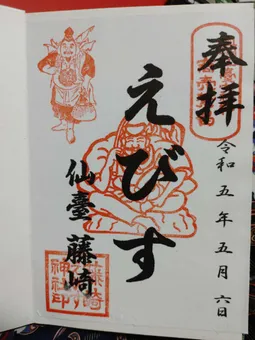 奉拝
令和五年五月六日
えびす
仙臺藤崎